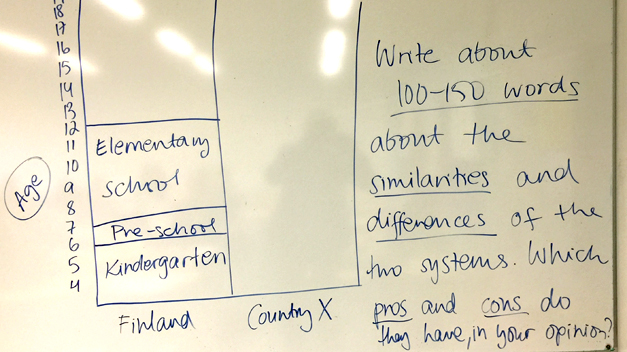 18
17
16
15
14
13
12
11
10
9
8
7
6
5
4
Age
Elementary
school
Pre-school
Kindergarten
Finland
Country X
Write about
100-150 words
about the
similarities and
differences of the
two systems. Which
pros and cons do
they have, in your opinion?